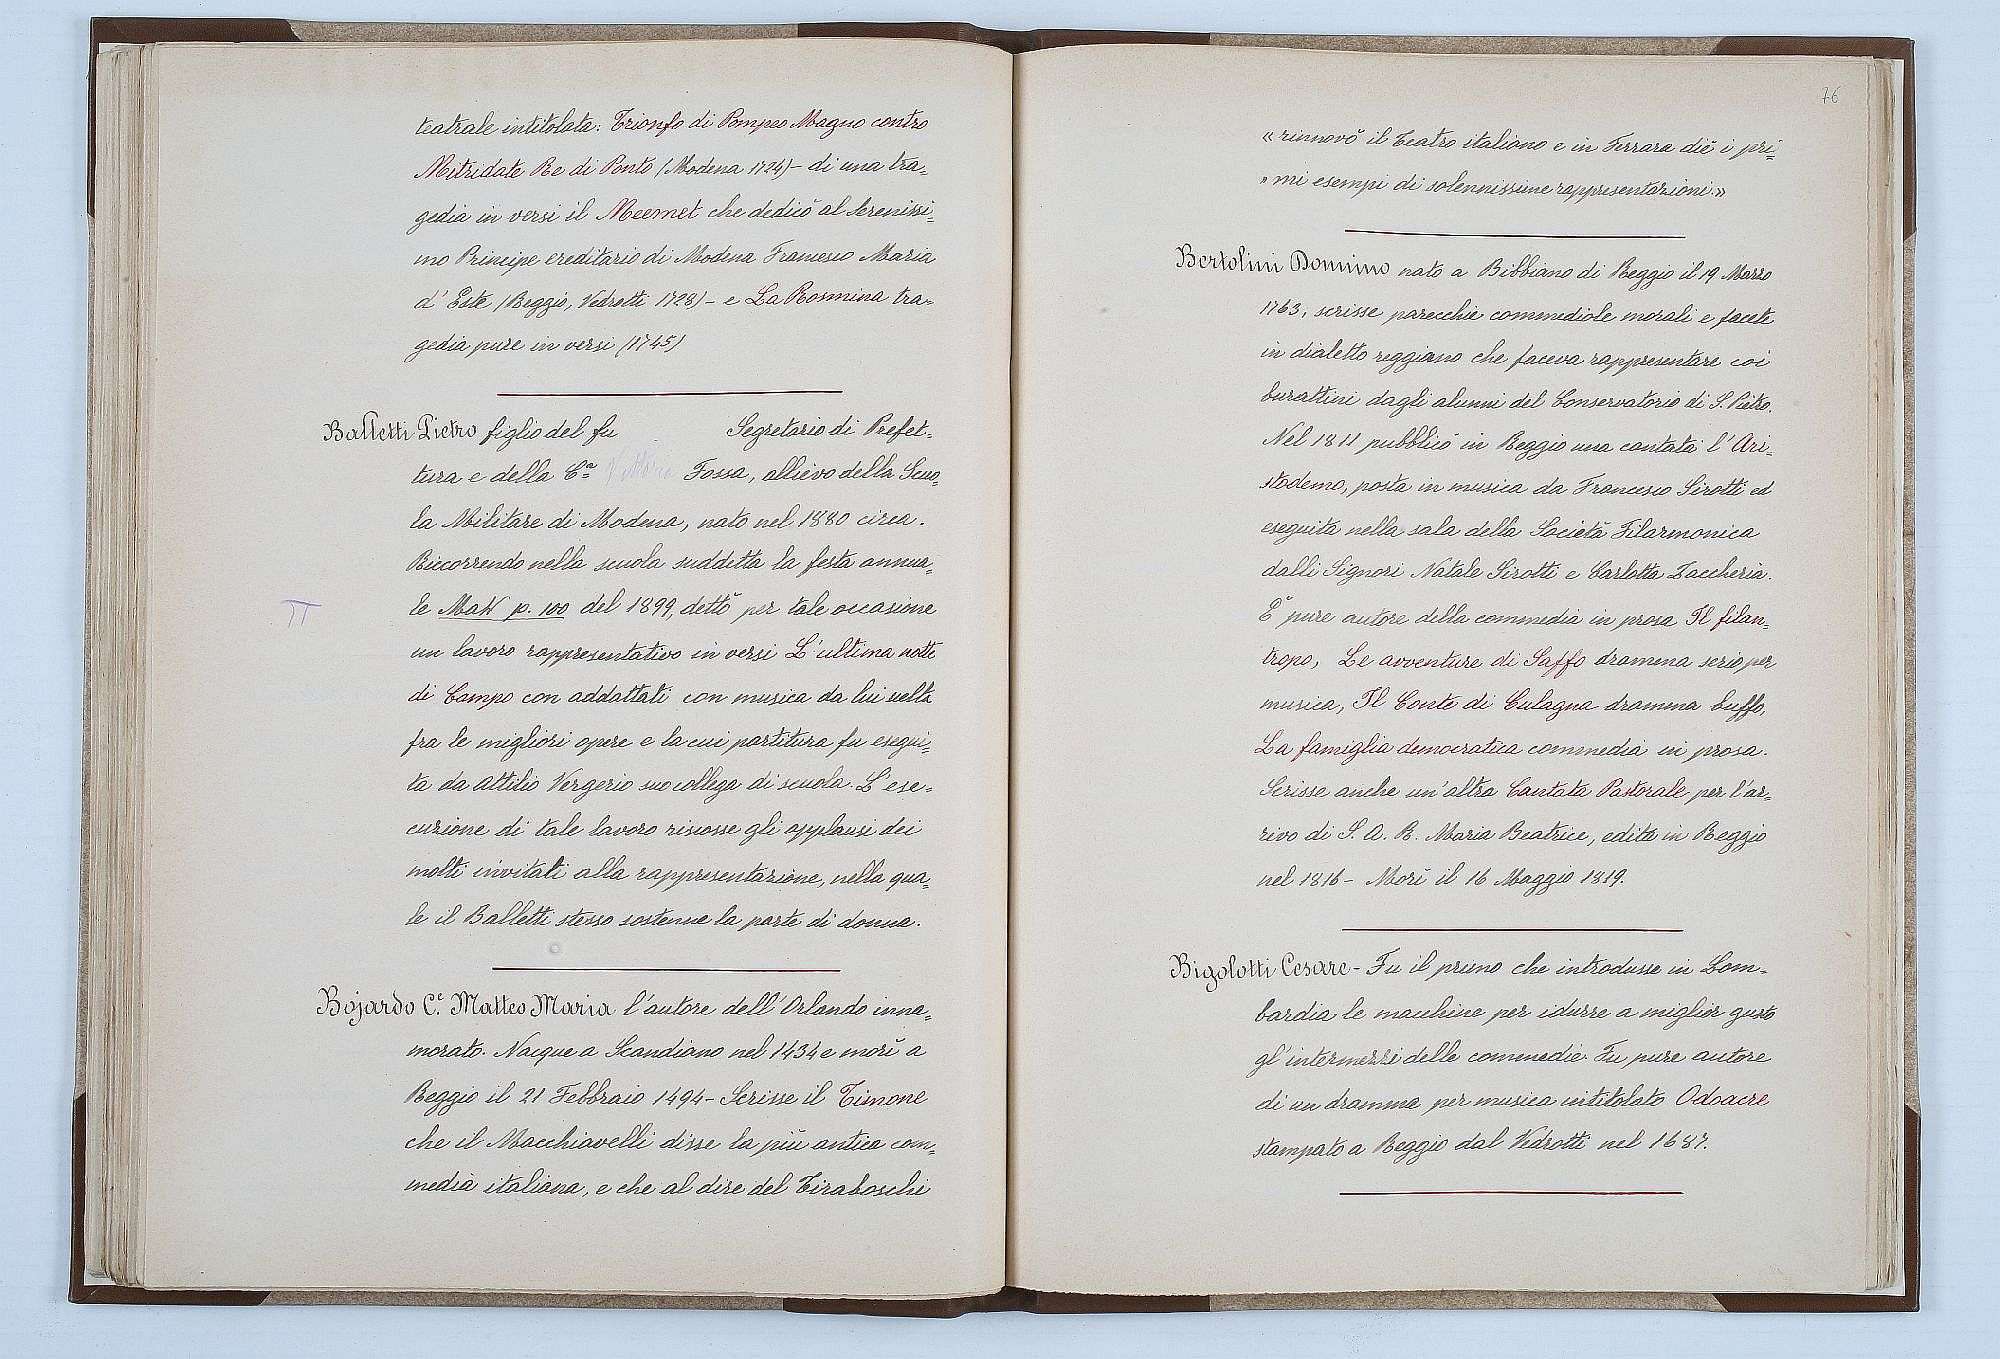 teatrale intitolata: Trionfo di Pompeo Magno contro
Mitridate Re di Ponto (Modena 1724) - di una tra=
gedia in versi il Meemet che dedicò al Serenissi=
mo Principe ereditario di Modena Francesco Maria
d'Este (Reggio, Vedrotti 1728) - e La Rosmina tra=
gedia pure in versi (1745)
Balletti Pietro figlio del fu Segretario di Prefet=
tura e della Cª Vittoria Fossa, allievo della Scuo=
la Militare di Modena, nato nel 1880 circa.
Riccorrendo nella scuola suddetta la festa annua=
le Mak p. 100 del 1899, dettò per tale occasione
un lavoro rappresentativo in versi L'ultima notte
di Campo con addattati con musica da lui scelta
fra le migliori opere e la cui partitura fu esegui=
ta da Attilio Vergerio suo collega di scuola. L'ese=
cuzione di tale lavoro riscosse gli applausi dei
molti invitati alla rappresentazione, nella qua=
le il Balletti stesso sostenne la parte di donna.
Bojardo C.e Matteo Maria l'autore dell'Orlando inna=
morato. Nacque a Scandiano nel 1434 e morì a
Reggio il 21 Febbraio 1494 - Scrisse il Timone
che il Macchiavelli disse la più antica com=
media italiana, e che al dire del Tiraboschi
76
«rinnovò il Teatro italiano e in Ferrara diè i pri=
» mi esempi di solennissime rappresentazioni.»
Bertolini Donnino nato a Bibbiano di Reggio il 19 Marzo
1763, scrisse parecchie commediole morali e facete
in dialetto reggiano che faceva rappresentare coi
burattini dagli alunni del Conservatorio di S. Pietro.
Nel 1811 pubblicò in Reggio una cantata l'Ari=
stodemo, posta in musica da Francesco Sirotti ed
eseguita nella sala della Società Filarmonica
dalli Signori Natale Sirotti e Carlotta Zaccheria.
È pure autore della commedia in prosa Il filan=
tropo, Le avventure di Saffo dramma serio per
musica, Il Conte di Culagna dramma buffo,
La famiglia democratica commedia in prosa.
Scrisse anche un'altra Cantata Pastorale per l'ar=
rivo di S. A. R. Maria Beatrice, edita in Reggio
nel 1816 - Morì il 16 Maggio 1819.
Bigolotti Cesare - Fu il primo che introdusse in Lom=
bardia le macchine per idurre a miglior gusto
gl'intermezzi delle commedie. Fu pure autore
di un dramma per musica intitolato Odoacre
stampato a Reggio dal Vedrotti nel 1687.